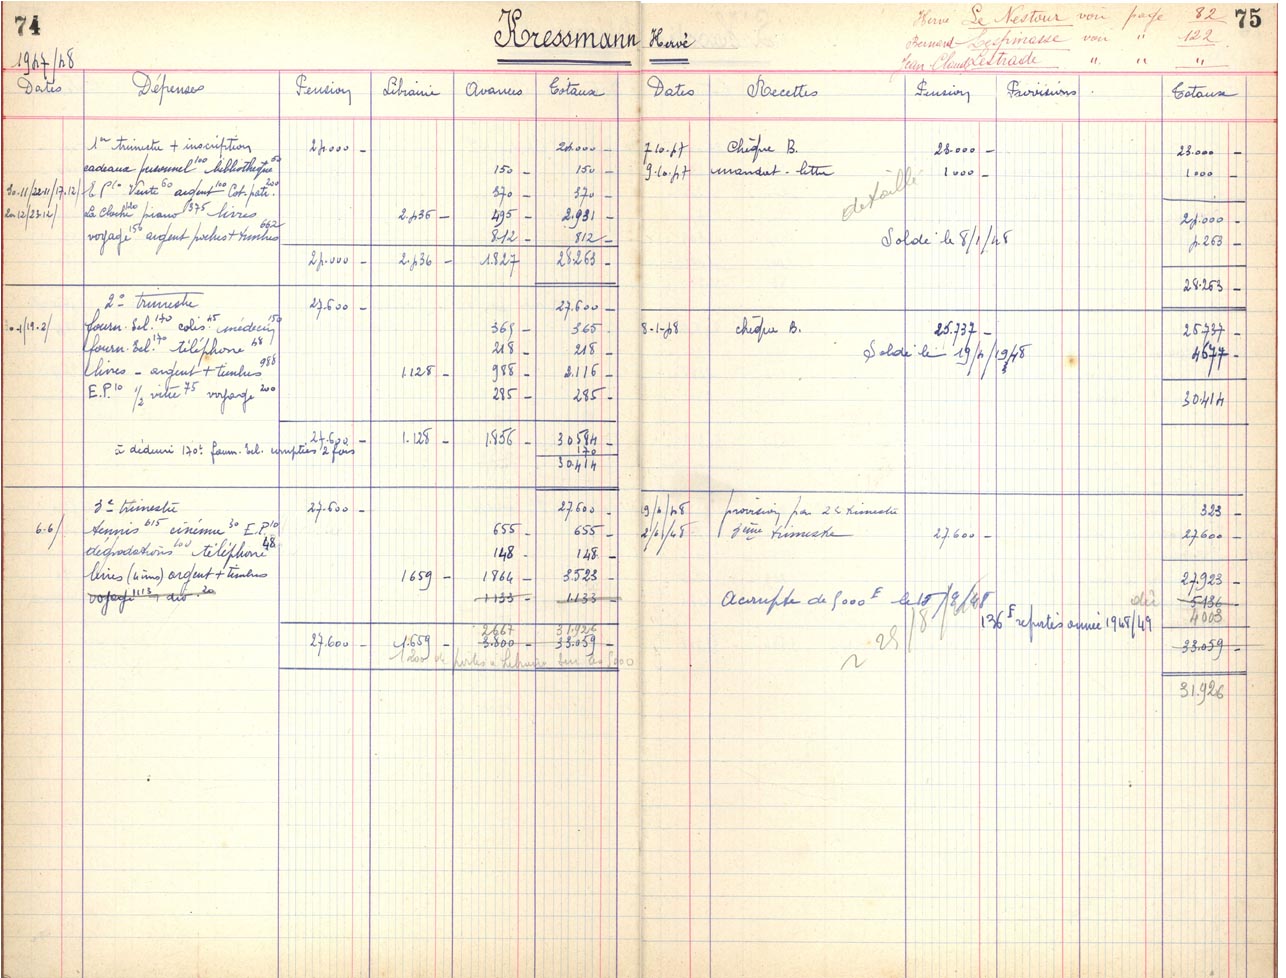 74
Kressmann Hervé
75
Hervé Le Nestour voir page 82
Bernard Lespinasse voir " 122
Jean-Claude Lestrade " " "
1947/48
Dates Dépenses Pension Librairie Avances Totaux
1er trimestre + inscription 24.000 - 24.000 -
cadeaux personnel 100 bibliothèque 50 150 - 150 -
30.11/22.11/17.12/ E.P. 10 Vente 60 argent 100 Cot. patr. 200 370 - 370 -
20.12/23.12/ La Cloche 120 piano 375 livres 2.436 - 495 - 2.931 -
voyage 150 argent poches + timbres 662 812 - 812 -
24.000 - 2.436 - 1.827 28.263 -
2e trimestre 27.600 - 27.600 -
/19.2/ fourn. Sel. 170 colis 45 médecin 150 365 - 365 -
fourn. Sel. 170 téléphone 48 218 - 218 -
livres - argent + timbres 988 1.128 - 988 - 2.116 -
E.P. 10 1/2 vitre 75 voyage 200 285 - 285 -
27.600 - 1.128 - 1.856 - 30.584 -
à déduire 170f fourn. Sel. comptées 2 fois 170
30.414 -
3e trimestre 27.600 - 27.600 -
6.6/ tennis 615 cinéma 30 E.P. 10 655 - 655 -
dégradations 100 téléphone 48 148 - 148 -
livres (4 ème) argent + timbres 1659 - 1864 - 3.523 -
voyage 1113 div. 20 1133 - 1.133 -
2667 31.926
27.600 - 1.659 - 3.800 - 33.059 -
1200 de portés à Librairie sur les 5000
Dates Recettes Pension Provisions Totaux
7.10.47 Chèque B. 23.000 - 23.000 -
9.10.47 mandat-lettre 1000 - 1000 -
détaillé
24.000 -
Soldé le 8/1/48 4.263 -
28.263 -
8-1-48 chèque B. 25.737 - 25.737 -
Soldé le 19/4/1948 4677 -
30.414 -
9/4/48 provision par 2e trimestre 323 -
2/4/48 3ème trimestre 27.600 - 27.600 -
27.923 -
Acompte de 5000 F le 15/8/48 dû 5136 -
136 F reportés année 1948/49 4003
25/8/
33.059 -
31.926